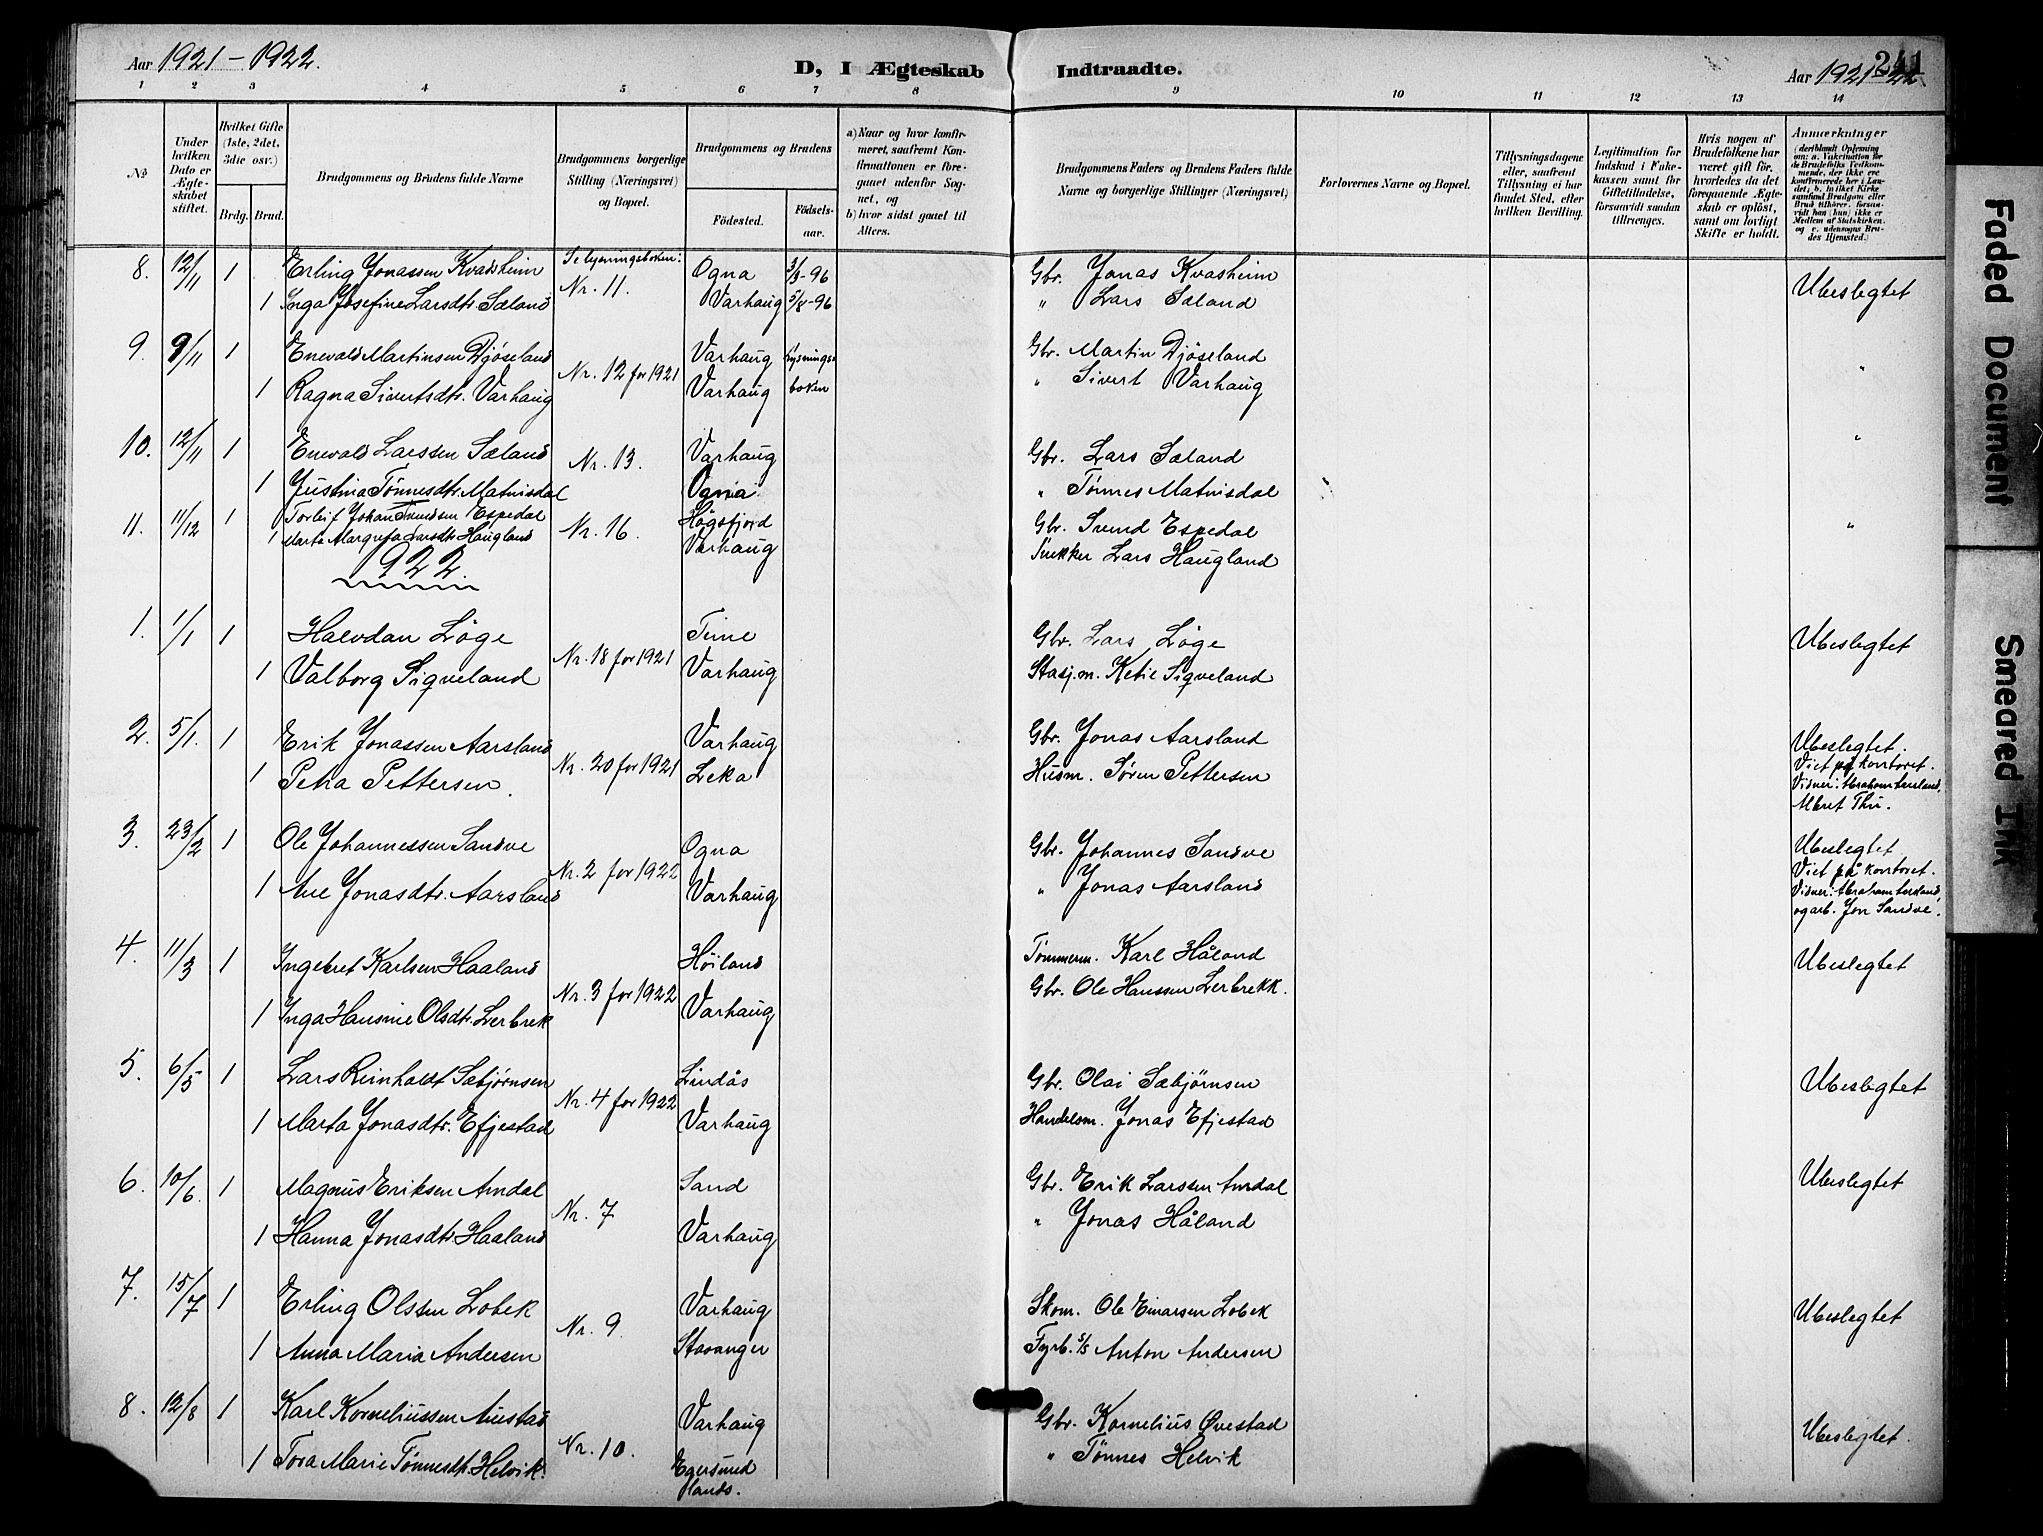 Aar 1921 - 1922.
D, I Ægteskab Indtraadte.
Aar 1921-22
241
1 2 3 4 5 6 7 8 9 10 11 12 13 14
№
Under hvilken Dato er Ægteskabet stiftet.
Hvilket Gifte (1ste, 2det, 3die osv.)
Brdg. Brud.
Brudgommens og Brudens fulde Navne
Brudgommens borgerlige Stilling (Næringsvei) og Bopæl.
Brudgommens og Brudens
Fødested. Fødselsaar.
a) Naar og hvor konfirmeret, saafremt Konfirmationen er foregaaet udenfor Sognet, og
b) hvor sidst gaaet til Alters.
Brudgommens Faders og Brudens Faders fulde Navne og borgerlige Stillinger (Næringsvei)
Forlovernes Navne og Bopæl.
Tillysningsdagene eller, saafremt Tillysning ei har fundet Sted, efter hvilken Bevilling.
Legitimation for Indskud i Enkekassen samt for Giftetilladelse, forsaavidt saadan tiltrenges.
Hvis nogen af Brudefolkene har været gift før, hvorledes da det foregaaende Ægteskab er opløst, samt om lovligt Skifte er holdt.
Anmærkninger
8. 12/11 1 Erling Jonassen Kvadsheim Se lysningsboken: Ogna 3/3-96 Gbr. Jonas Kvasheim Ubeslegtet
1 Inga Josefine Larsdtr. Sæland Nr. 11. Varhaug 5/8-96 " Lars Sæland
9. 9/11 1 Enevald Martinsen Djøseland Varhaug lysnings Gbr. Martin Djøseland "
1 Ragna Sivertsdtr. Varhaug Nr. 12 for 1921 Varhaug boken " Sivert Varhaug
10. 12/11 1 Enevald Larssen Sæland Nr. 13. Varhaug Gbr. Lars Sæland "
1 Justina Tønnesdtr. Matnisdal Ogna. " Tønnes Matnisdal
11. 11/12 1 Torleif Johan Svendsen Espedal Nr. 16. Høgsfjord Gbr. Svend Espedal "
1 Marta Margreta Larsdtr. Haugland Varhaug Snekker Lars Haugland
1922.
1. 1/1 1 Halvdan Løge Time Gbr. Lars Løge Ubeslegtet
1 Valborg Sigveland Nr. 18 for 1921 Varhaug Stasj.m. Ketil Sigveland
2. 5/1. 1 Erik Jonassen Aarsland Varhaug Gbr. Jonas Aarsland Ubeslegtet.
1 Petra Pettersen. Nr. 20 for 1921 Leka Husm. Søren Pettersen Viet på kontoret.
Vidner: Abraham Aarsland,
Meret Thu.
3. 23/2 1 Ole Johannessen Sandve Ogna Gbr. Johannes Sandve Ubeslegtet.
1 Ane Jonasdtr. Aarsland Nr. 2 for 1922 Varhaug " Jonas Aarsland Viet på kontoret.
Vidner: Abraham Aarsland,
og arb. Jon Sandve.
4. 11/3 1 Ingebret Karlsen Haaland Høiland Tømmerm. Karl Håland Ubeslegtet
1 Inga Hansine Olsdtr. Lerbrek Nr. 3 for 1922 Varhaug Gbr. Ole Hanssen Lerbrekk.
5. 6/5 1 Lars Reinholdt Sæbjørnsen Lindås Gbr. Olai Sæbjørnsen Ubeslegtet
1 Marta Jonasdtr. Efjestad Nr. 4 for 1922 Varhaug Handelsm. Jonas Efjestad
6. 10/6. 1 Magnus Eriksen Amdal Sand Gbr. Erik Larssen Amdal Ubeslegtet
1 Hanna Jonasdtr. Haaland Nr. 7 Varhaug " Jonas Håland
7. 15/7 1 Erling Olssen Lobek Varhaug Skom. Ole Einarsen Lobek Ubeslegtet
1 Anna Maria Andersen Nr. 9. Stavanger Fyrb. s/s Anton Andersen
8. 12/8 1 Karl Korneliussen Auestad Varhaug Gbr. Kornelius Øvestad Ubeslegtet.
1 Tora Marie Tønnesdtr. Helvik. Nr. 10. Egersund lands. " Tønnes Helvik
Faded Document
Smeared Ink